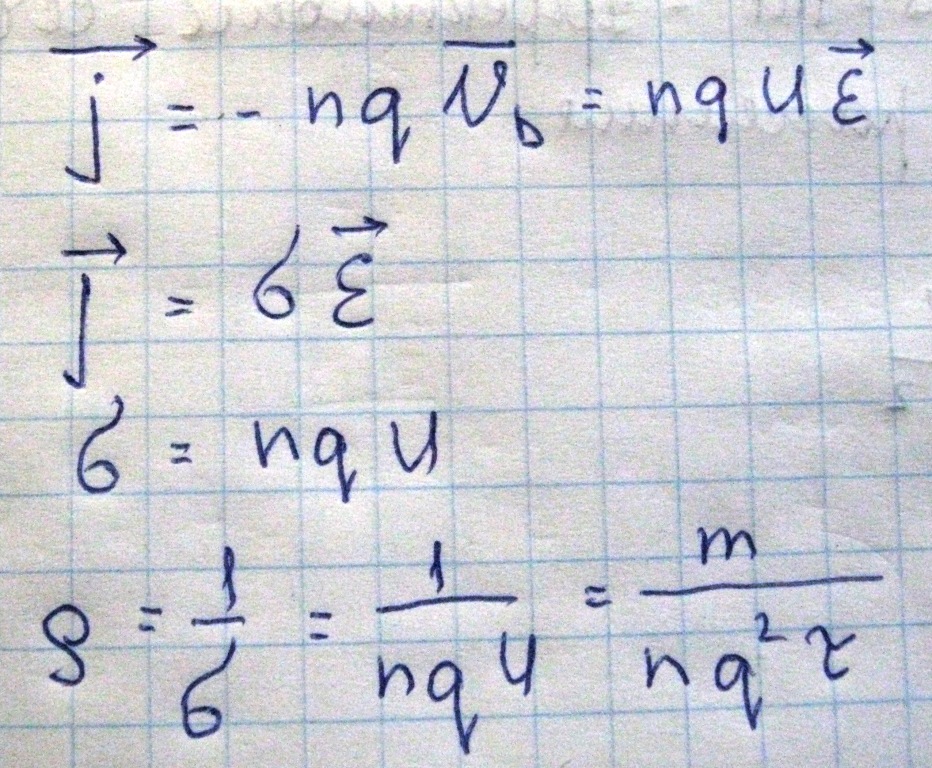 j⃗ = - nq v̅ₐ = nquε⃗
j⃗ = σε⃗
σ = nqu
ρ = 1/σ = 1/nqu = m/nq²τ